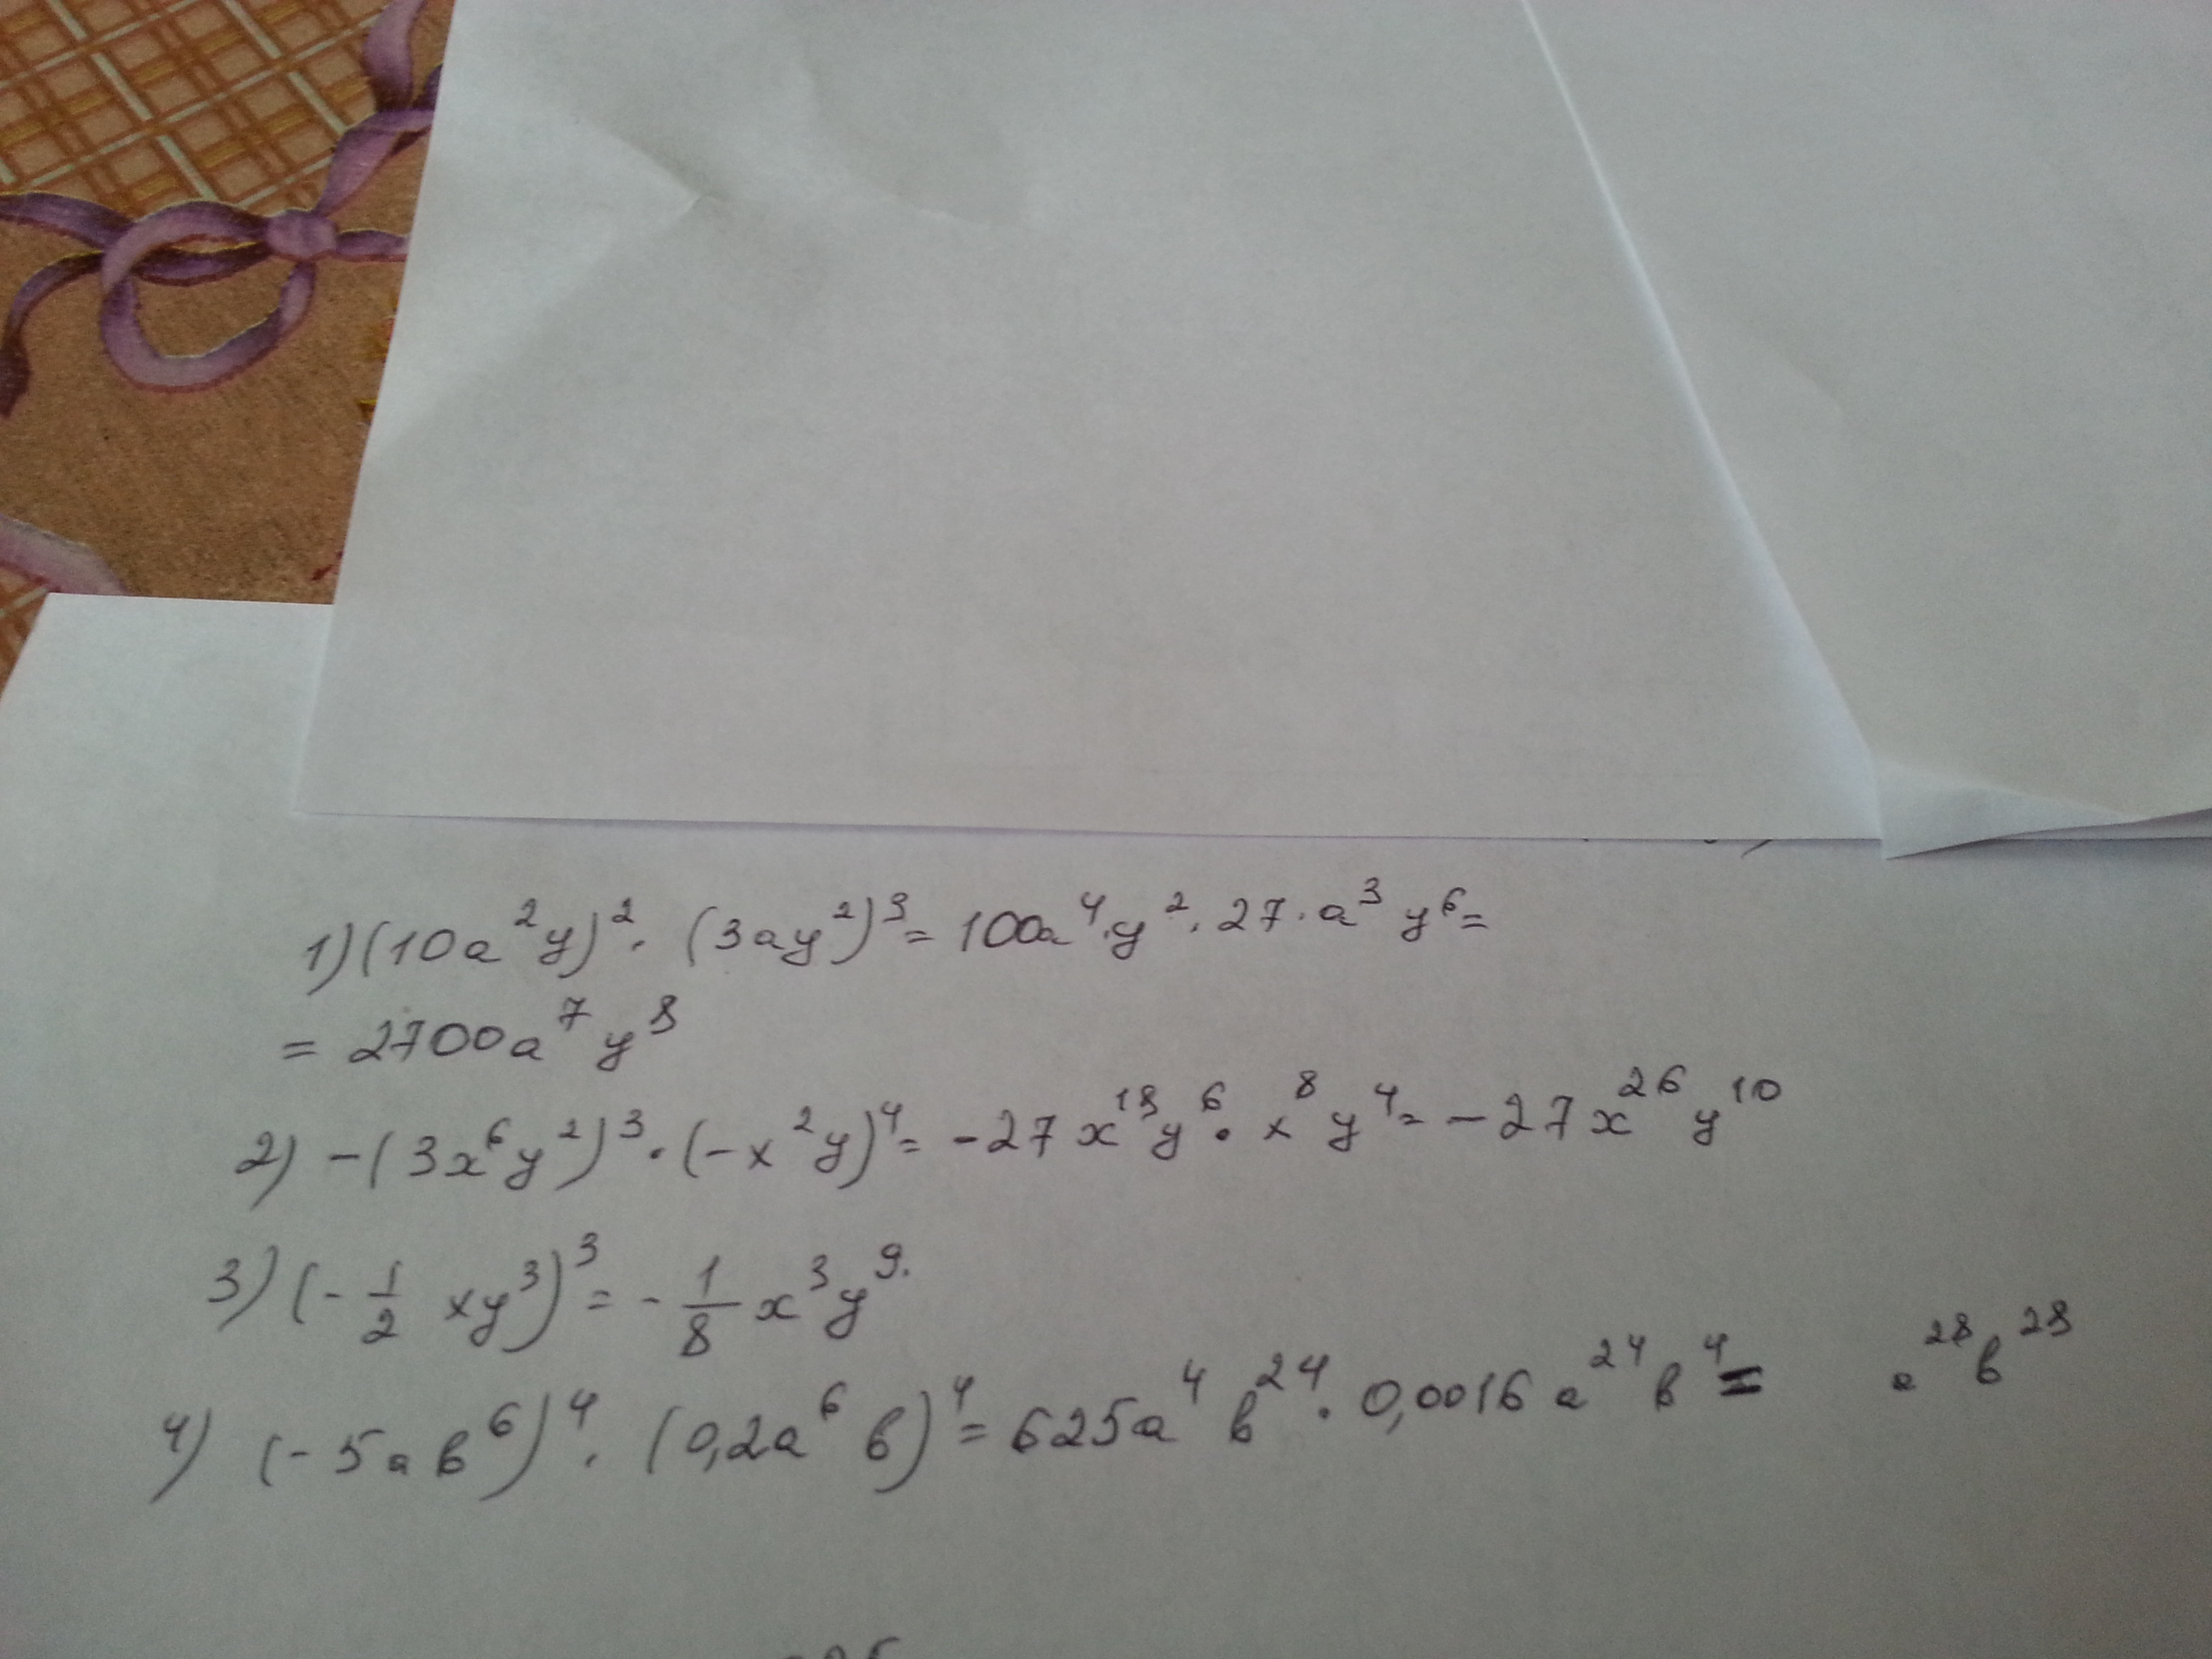 1) (10a²y)² · (3ay²)³ = 100a⁴·y² · 27 · a³ y⁶ =
= 2700a⁷ y⁸
2) -(3x⁶y²)³ · (-x²y)⁴ = -27x¹⁸y⁶ · x⁸y⁴ = -27x²⁶y¹⁰
3) (-1/2 xy³)³ = -1/8 x³y⁹.
4) (-5ab⁶)⁴ · (0,2a⁶ b)⁴ = 625a⁴ b²⁴ · 0,0016 a²⁴ b⁴ = a²⁸b²⁸